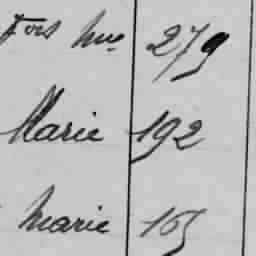 Fois Mie 279
Marie 192
Marie 165